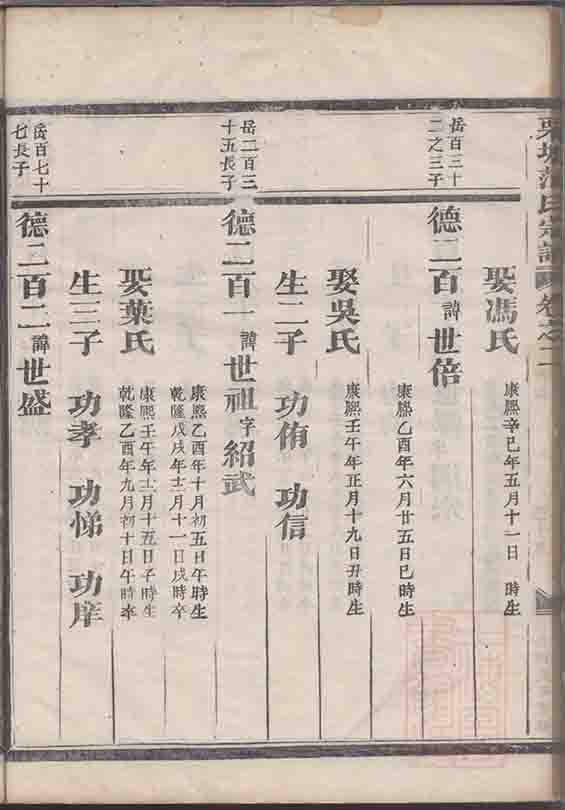 氏宗譜 卷之二
娶馮氏
康熙辛巳年五月十一日 時生
岳百三十二之三子
德二百 諱 世倍
康熙乙酉年六月廿五日巳時生
娶吳氏
康熙壬午年正月十九日丑時生
生二子 功侑 功信
岳二百三十五長子
德二百一 諱 世祖 字 紹武
康熙乙酉年十月初五日午時生
乾隆戊戌年十二月十一日戌時卒
娶葉氏
康熙壬午年十二月十五日子時生
乾隆乙酉年九月初十日午時卒
生三子 功孝 功悌 功庠
岳百七十七長子
德二百二 諱 世盛